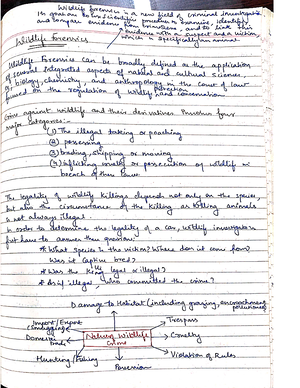 Wildlife forensics is a new field of criminal investigation
Its goals are to use scientific procedure to examine, identify
and compare evidence from crime scenes, and to link this
evidence with a suspect and a victim,
which is specifically an animal
Wildlife Forensics
Wildlife Forensics can be broadly defined as the application
of several integrated aspects of natural and cultural sciences,
biology, chemistry, and anthropology in the court of law
focused on the regulation of wildlife protection and conservation.
Crime against wildlife and their derivatives involves four
major categories:-
(1) The illegal taking or poaching
(2) possessing
(3) trading, shipping or moving
(4) inflicting cruelty or persecution of wildlife in
breach of the laws.
The legality of wildlife killings depends not only on the species,
but also the circumstance of the killing as killing animals
is not always illegal.
In order to determine the legality of a case, wildlife investigators
first have to answer three questions:
* What species is the victim? Where does it come from?
Was it captive bred?
* Was the killing legal or illegal?
* As if illegal, who committed the crime?
Damage to Habitat (including grazing, encroachment
pollution)
Import/Export
Smuggling
Trespass
Domestic
trade
Nature Wildlife
Crime
Cruelty
Hunting/Fishing
Violation of Rules
Possession